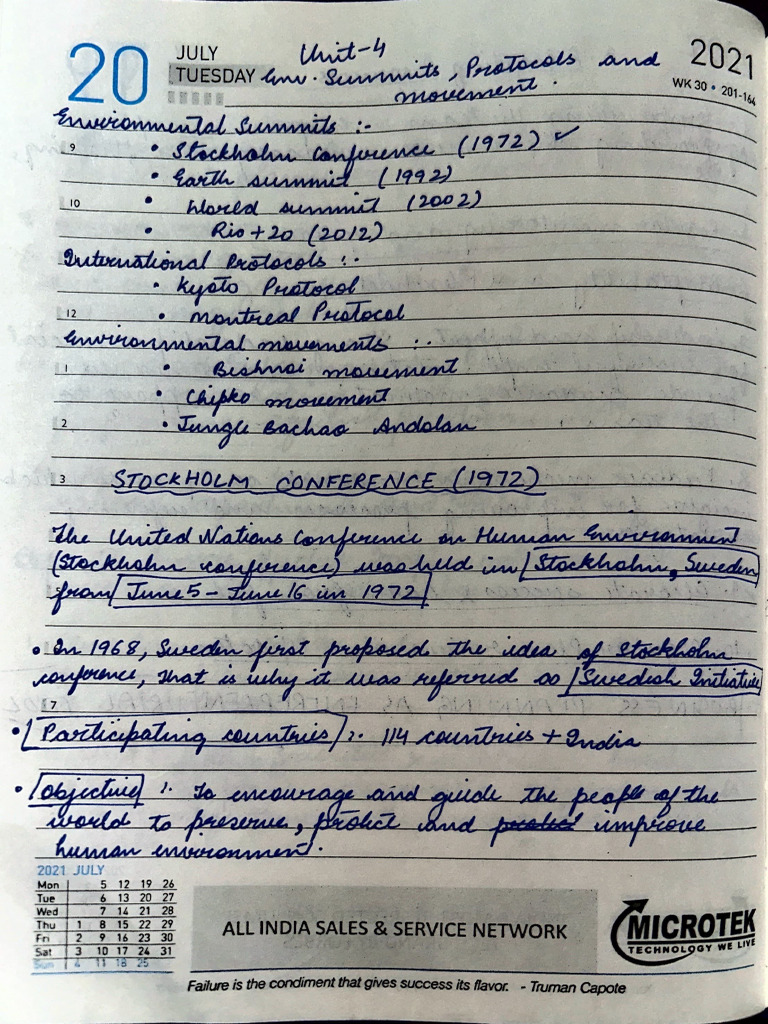 20 JULY TUESDAY
2021
WK 30 • 201-164
Unit-4
Env. Summits, Protocols and
movement.
Environmental Summits :-
9 • Stockholm Conference (1972) ✓
• Earth summit (1992)
10 • World summit (2002)
• Rio+20 (2012)
International Protocols :-
• Kyoto Protocol
12 • Montreal Protocol
Environmental movements :-
1 • Bishnoi movement
• Chipko movement
2 • Jungle Bachao Andolan
3 STOCKHOLM CONFERENCE (1972)
The United Nations Conference on Human Environment
(Stockholm conference) was held in Stockholm, Sweden
from June 5 - June 16 in 1972
• In 1968, Sweden first proposed the idea of Stockholm
conference, that is why it was referred as Swedish Initiative
7
• Participating countries :- 114 countries + India
• Objective :- To encourage and guide the people of the
world to preserve, protect and improve
human environment.
2021 JULY
Mon 5 12 19 26
Tue 6 13 20 27
Wed 7 14 21 28
Thu 1 8 15 22 29
Fri 2 9 16 23 30
Sat 3 10 17 24 31
Sun 4 11 18 25
ALL INDIA SALES & SERVICE NETWORK
MICROTEK
TECHNOLOGY WE LIVE
Failure is the condiment that gives success its flavor. - Truman Capote